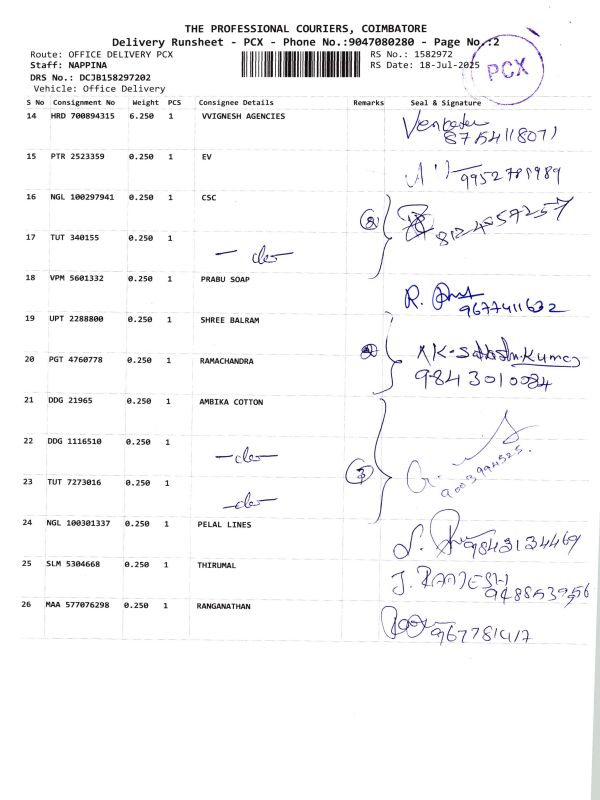 THE PROFESSIONAL COURIERS, COIMBATORE
Delivery Runsheet - PCX - Phone No.:9047080280 - Page No.:2
Route: OFFICE DELIVERY PCX RS No.: 1582972
Staff: NAPPINA RS Date: 18-Jul-2025
DRS No.: DCJB158297202
Vehicle: Office Delivery
PCX
S No Consignment No Weight PCS Consignee Details Remarks Seal & Signature
14 HRD 700894315 6.250 1 VVIGNESH AGENCIES Venkatesh
87154118071
15 PTR 2523359 0.250 1 EV
9952781989
16 NGL 100297941 0.250 1 CSC (2) 8124957257
17 TUT 340155 0.250 1 — do —
18 VPM 5601332 0.250 1 PRABU SOAP R.
9677411632
19 UPT 2288800 0.250 1 SHREE BALRAM
20 PGT 4760778 0.250 1 RAMACHANDRA Kumar
9843010084
21 DDG 21965 0.250 1 AMBIKA COTTON
22 DDG 1116510 0.250 1 — do —
23 TUT 7273016 0.250 1 — do — (3) 9003994525.
24 NGL 100301337 0.250 1 PELAL LINES 9843134469
25 SLM 5304668 0.250 1 THIRUMAL J. RAAJESH
26 MAA 577076298 0.250 1 RANGANATHAN 967781417